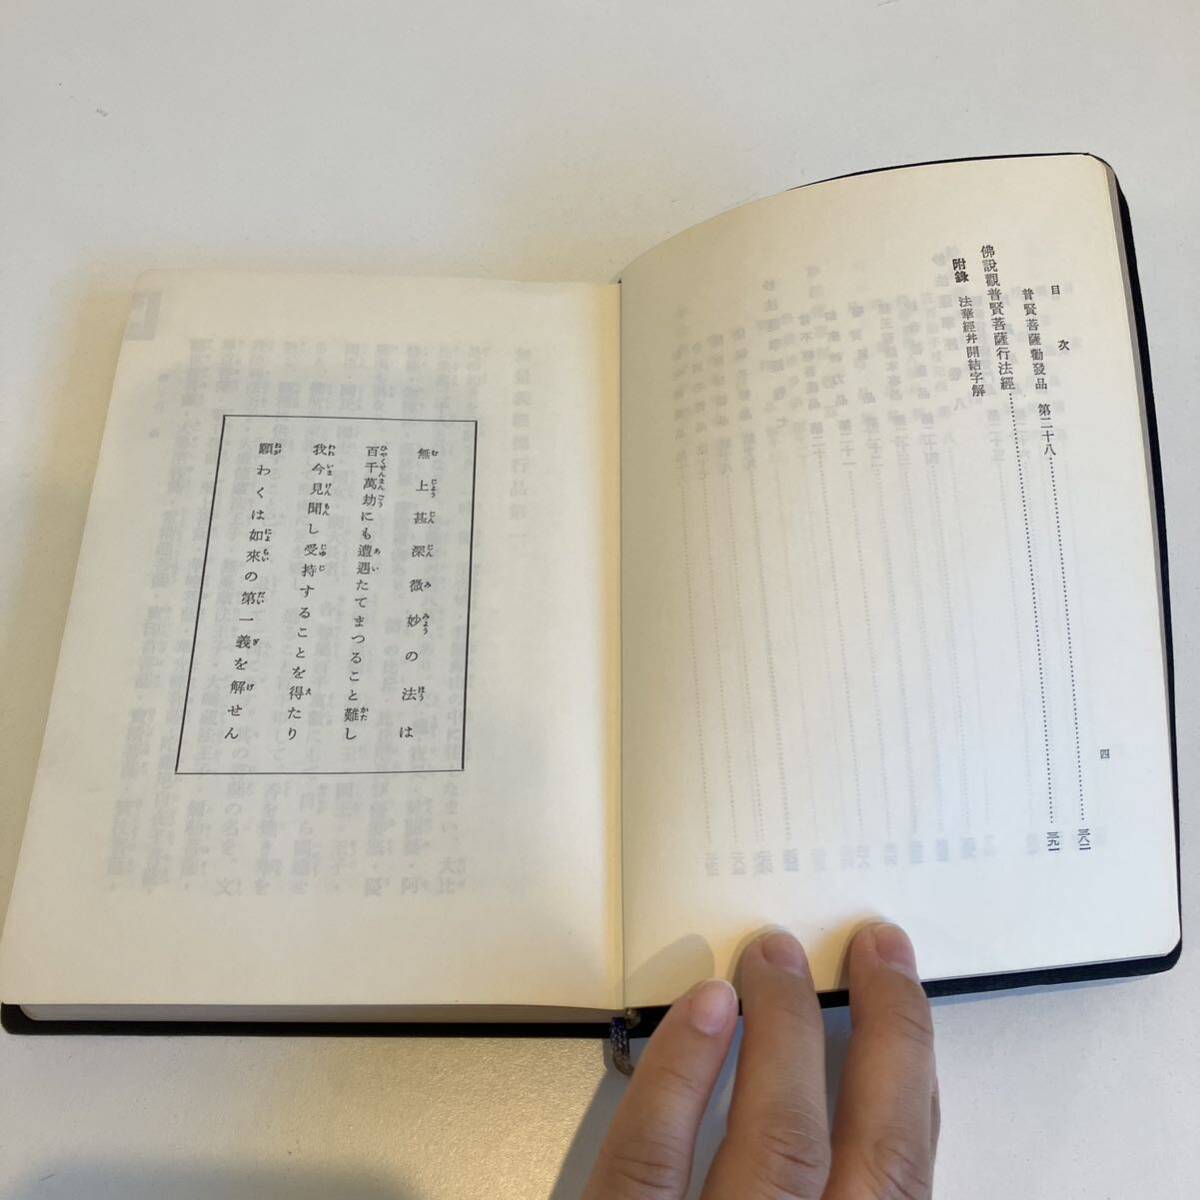 目次
普賢菩薩勸發品 第二十八………三八二
佛說觀普賢菩薩行法經………三九一
附錄 法華經幷開結字解
四
無上甚深微妙の法は
百千萬劫にも遭遇たてまつること難し
我今見聞し受持することを得たり
願わくは如來の第一義を解せん